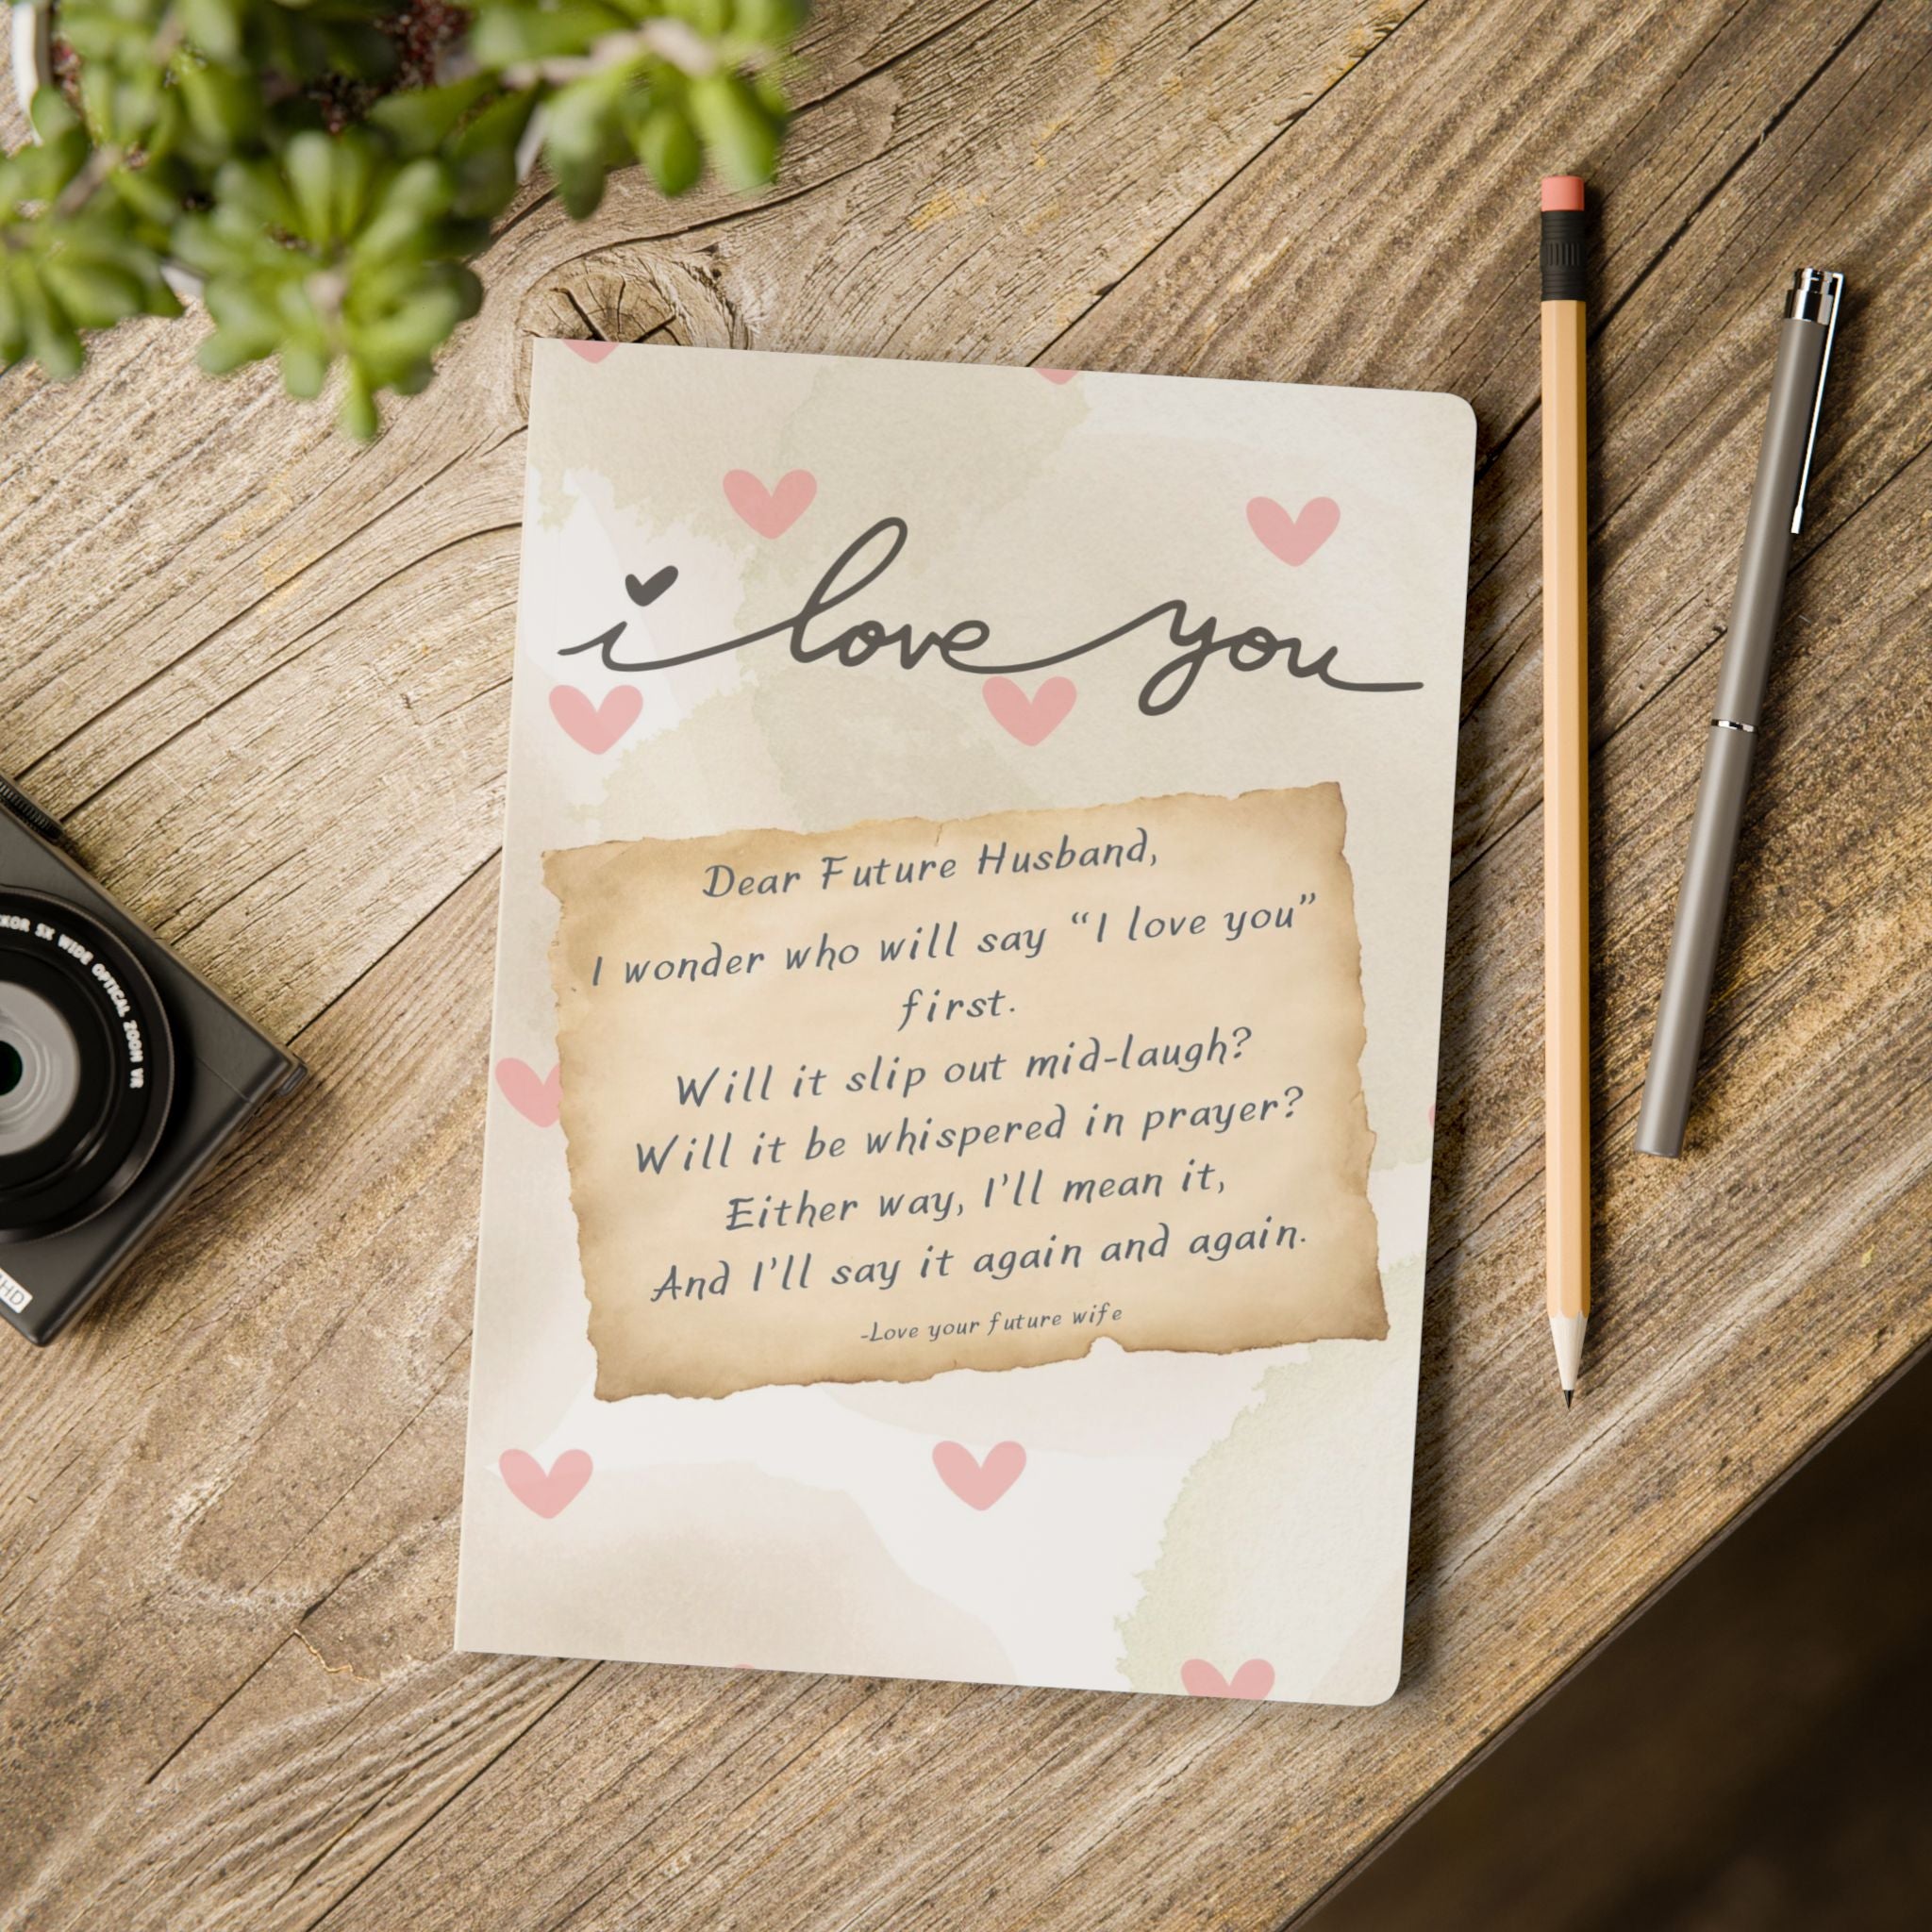 i love you
Dear Future Husband,
I wonder who will say “I love you”
first.
Will it slip out mid-laugh?
Will it be whispered in prayer?
Either way, I’ll mean it,
And I’ll say it again and again.
-Love your future wife
5X WIDE OPTICAL ZOOM VR
HD